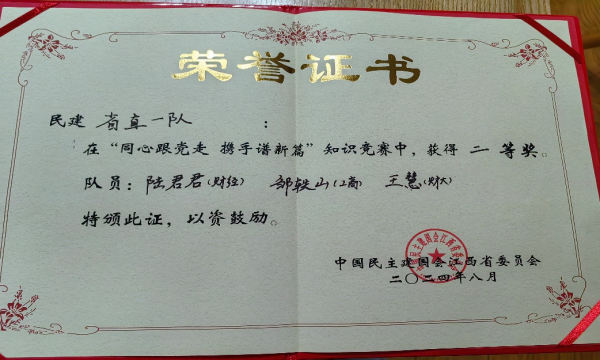 荣誉证书
民建 省直一队 :
在“同心跟党走 携手谱新篇”知识竞赛中,获得 二 等奖。
队员:陆君君(财经) 邹轶山(工商) 王慧(财大)
特颁此证,以资鼓励。
中国民主建国会江西省委员会
二〇二四年八月